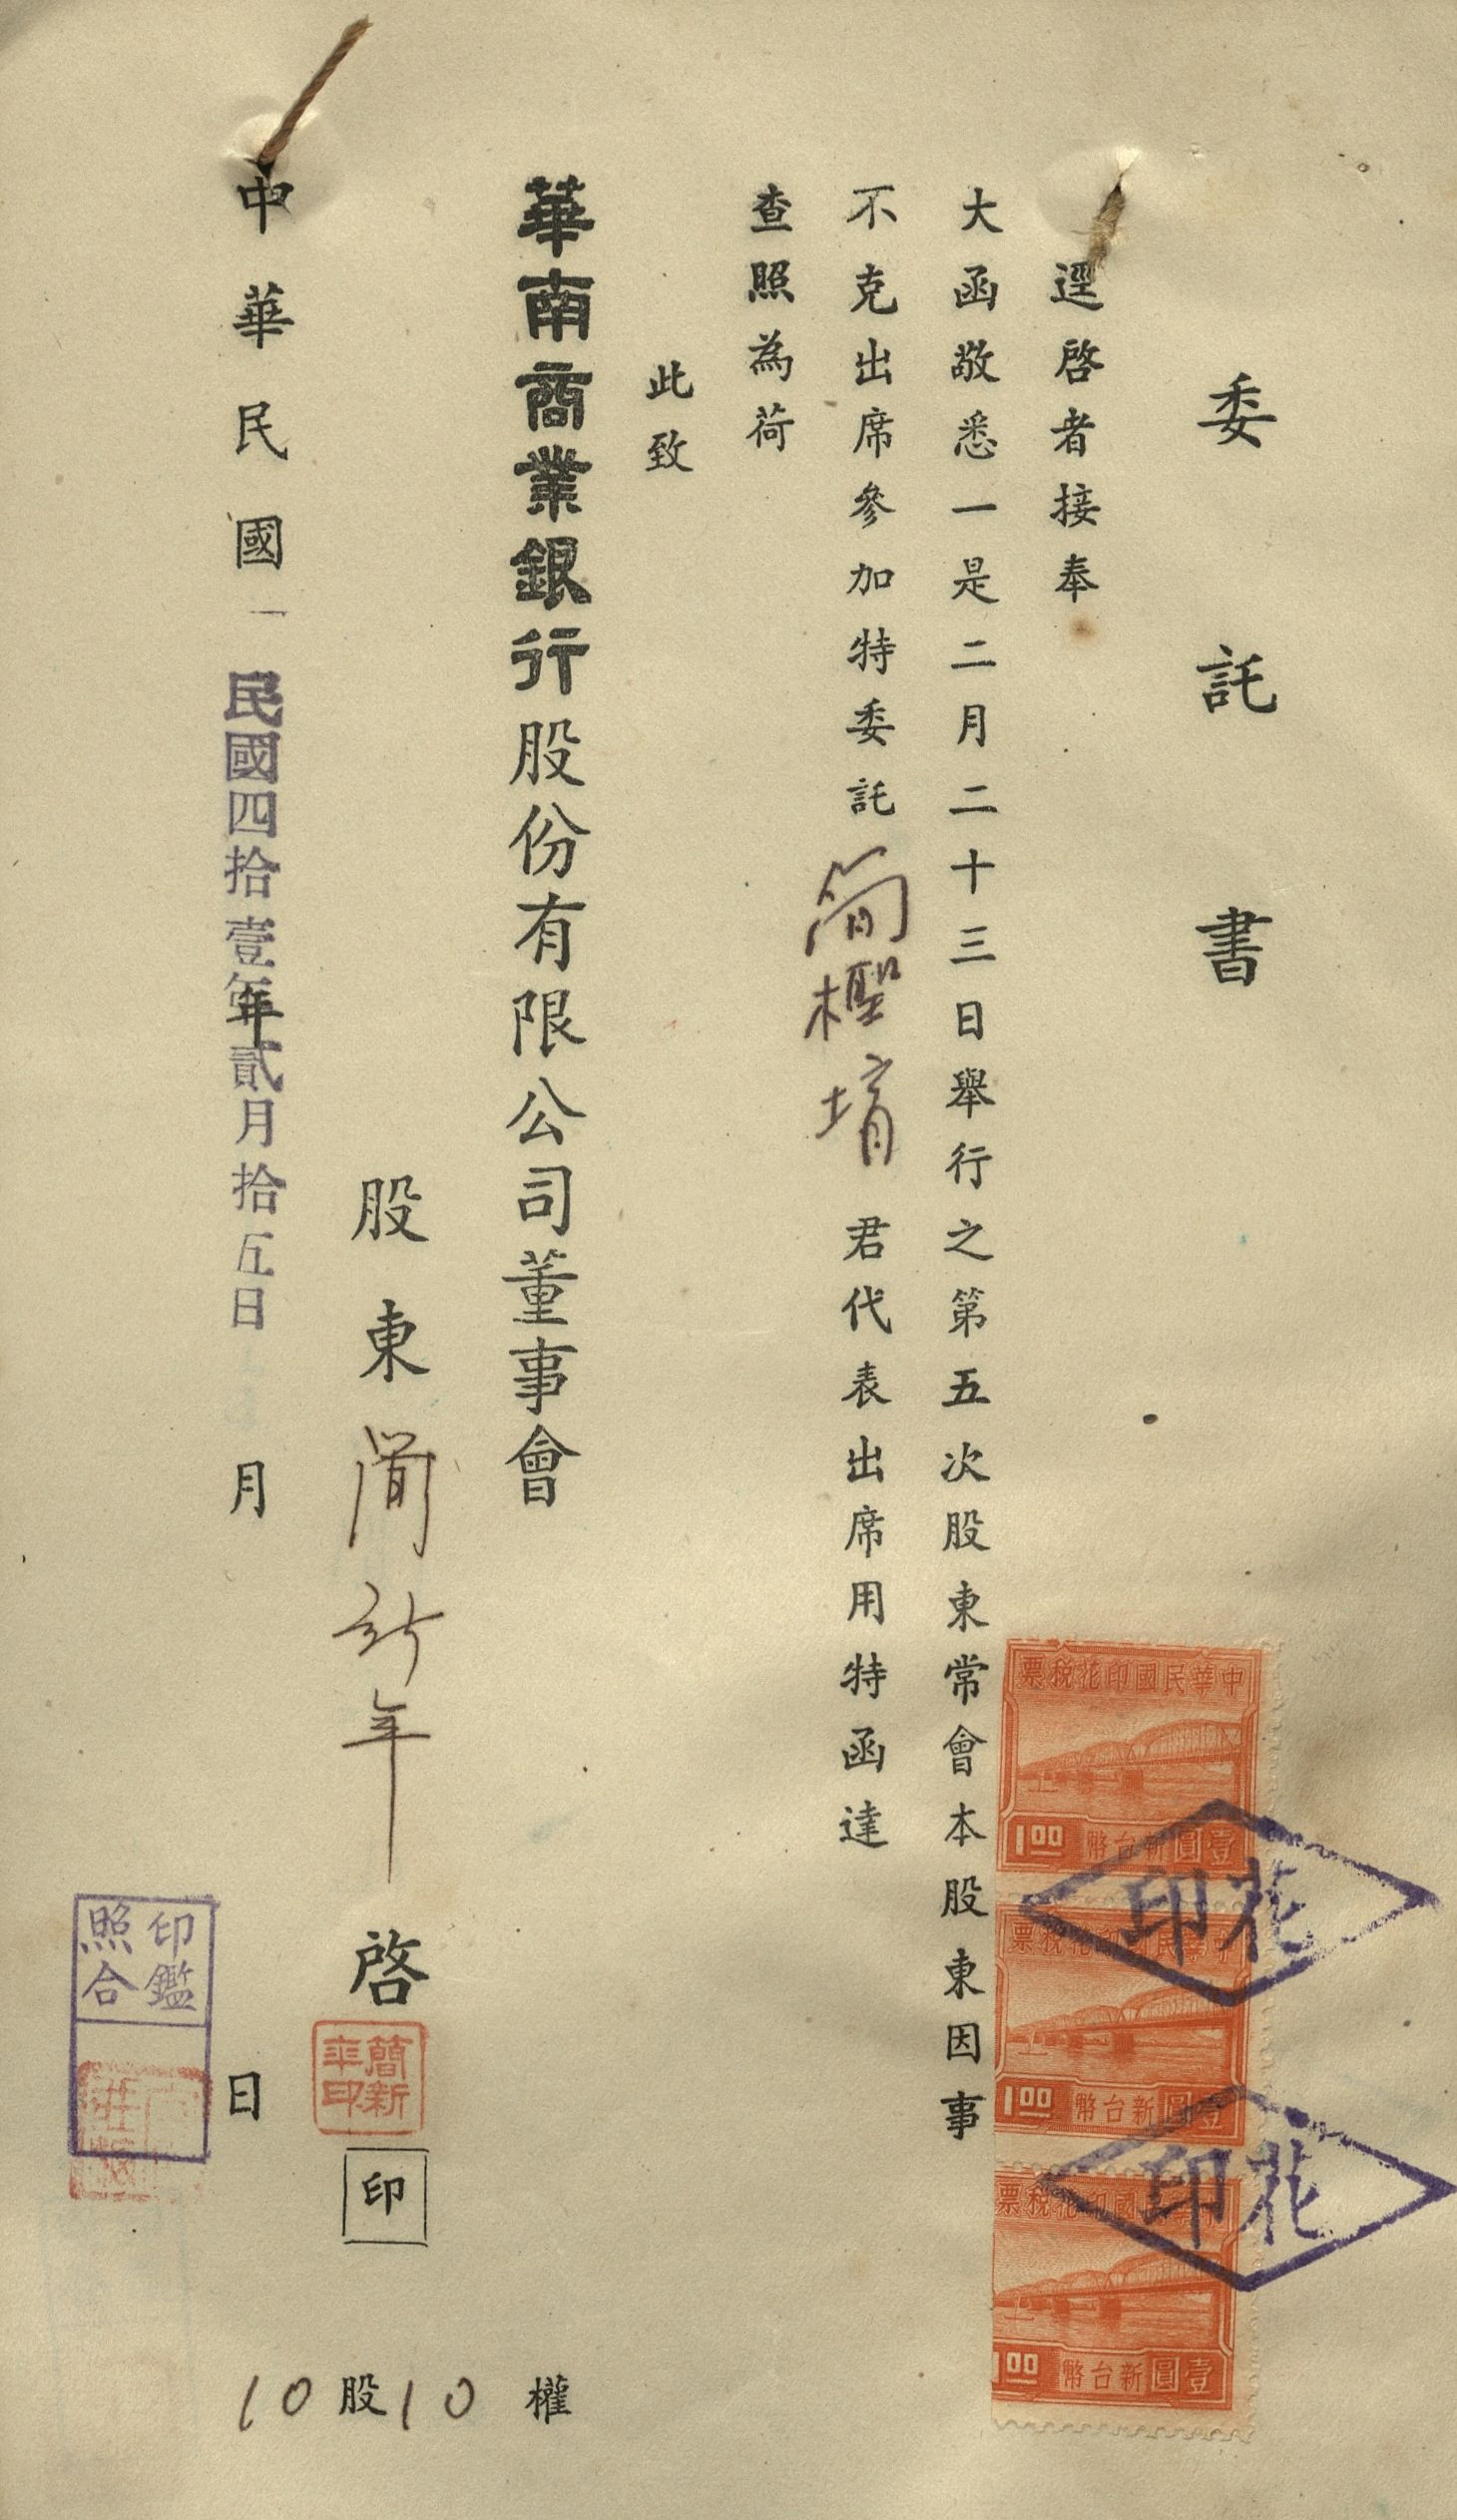 委託書
逕啓者接奉
大函敬悉一是二月二十三日舉行之第五次股東常會本股東因事
不克出席參加特委託簡檉堉君代表出席用特函達
查照為荷
此致
華南商業銀行股份有限公司董事會
股東簡新年啓
簡新年印
印
10股10權
中華民國一年月日
民國四拾壹年貳月拾五日
印鑑照合
中華民國印花稅票
壹圓新台幣1.00
中華民國印花稅票
壹圓新台幣1.00
中華民國印花稅票
壹圓新台幣1.00
花印
花印